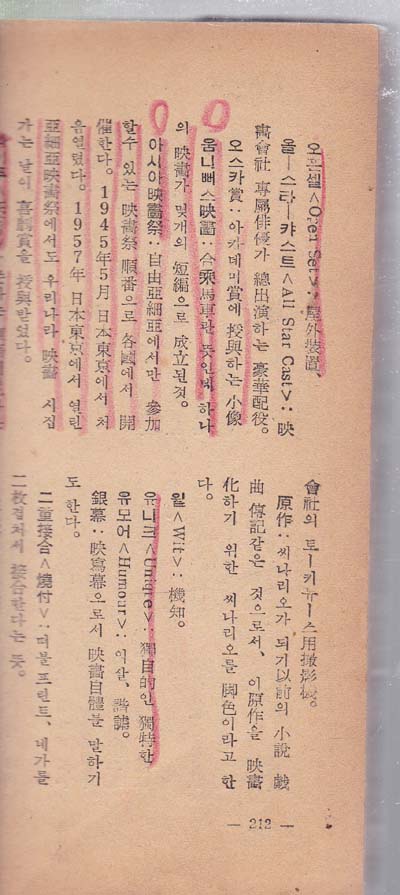 오픈셑<Open Set>: 屋外裝置。
올—스타—캬스트<All Star Cast>: 映
畵會社 專屬俳優가 總出演하는 豪華配役。
오스카賞: 아카데미賞에 授與하는 小像
옴니뻐스映畵: 合乘馬車란 뜻인데 하나
의 映畵가 몇개의 短編으로 成立된것。
아시아映畵祭: 自由亞細亞에서만 參加
할수 있는 映畵祭 順番으로 各國에서 開
催한다。1945年5月 日本東京에서 처
음열렸다。1957年 日本東京에서 열린
亞細亞映畵祭에서도 우리나라 映畵 시집
가는 날이 喜劇賞을 授與받었다。
會社의 토—키뉴—스用撮影機。
原作: 씨나리오가 되기以前의 小說 戱
曲 傳記같은 것으로서、이原作을 映畵
化하기 위한 씨나리오를 脚色이라고 한
다。
윝<Wit>: 機知。
유니크<Unique>: 獨自的인 獨特한
유모어<Humour>: 익살、諧謔。
銀幕: 映寫幕으로서 映畵自體를 말하기
도 한다。
二重接合<燒付>: 더블프린트、네가를
二枚겹처서 接合한다는 뜻。
— 212 —